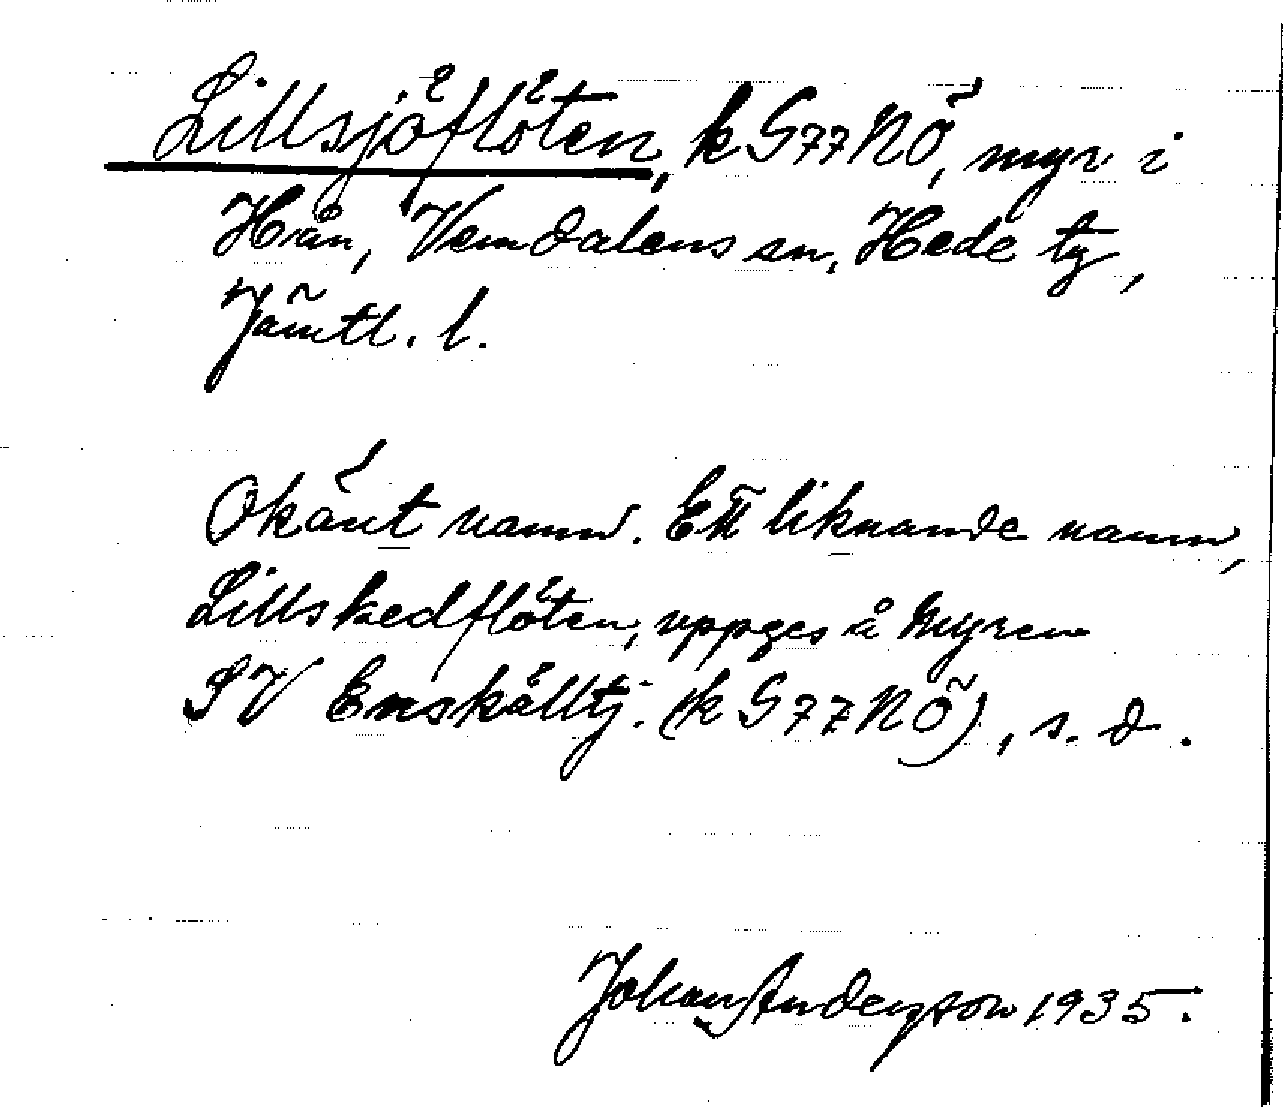 Lillsjöflöten, k G77NÖ, myr i
Hån, Vemdalens sn, Hede tg,
Jämtl. l.
Okänt namn. Ett liknande namn,
Lillskedflöten, uppges å myren
SV Enskälltj. (k G77NÖ), s. d.
Johan Anderzson 1935.